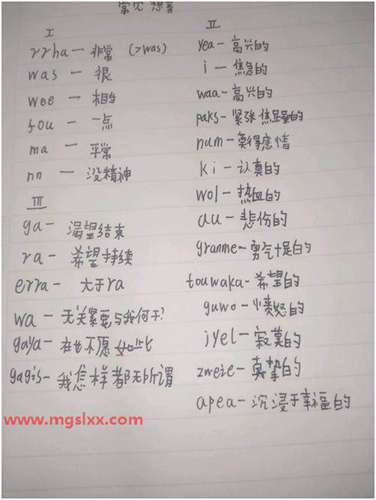 常见 想音
I
rrha — 非常 (>was)
was — 很
wee — 相当
fou — 一点
ma — 平常
nn — 没精神
III
ga — 渴望结束
ra — 希望持续
erra — 大于ra
wa — 无关紧要与我何干?
gaya — 在也不愿如此
gagis — 我怎样都无所谓
II
yea — 高兴的
i — 焦急的
waa — 高兴的
paks — 紧张 焦虑的
num — 莫得感情
ki — 认真的
wol — 热血的
au — 悲伤的
granme — 勇气十足的
touwaka — 希望的
guwo — 愤怒的
jyel — 寂寞的
zweie — 真挚的
apea — 沉浸于幸福的
www.mgslxx.com